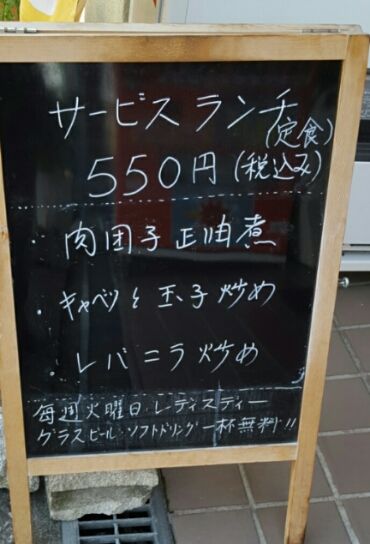 サービスランチ
(定食)
550円(税込み)
・肉団子正油煮
・キャベツと玉子炒め
・レバニラ炒め
毎週火曜日・レディスディー
グラスビール・ソフトドリンク一杯無料!!